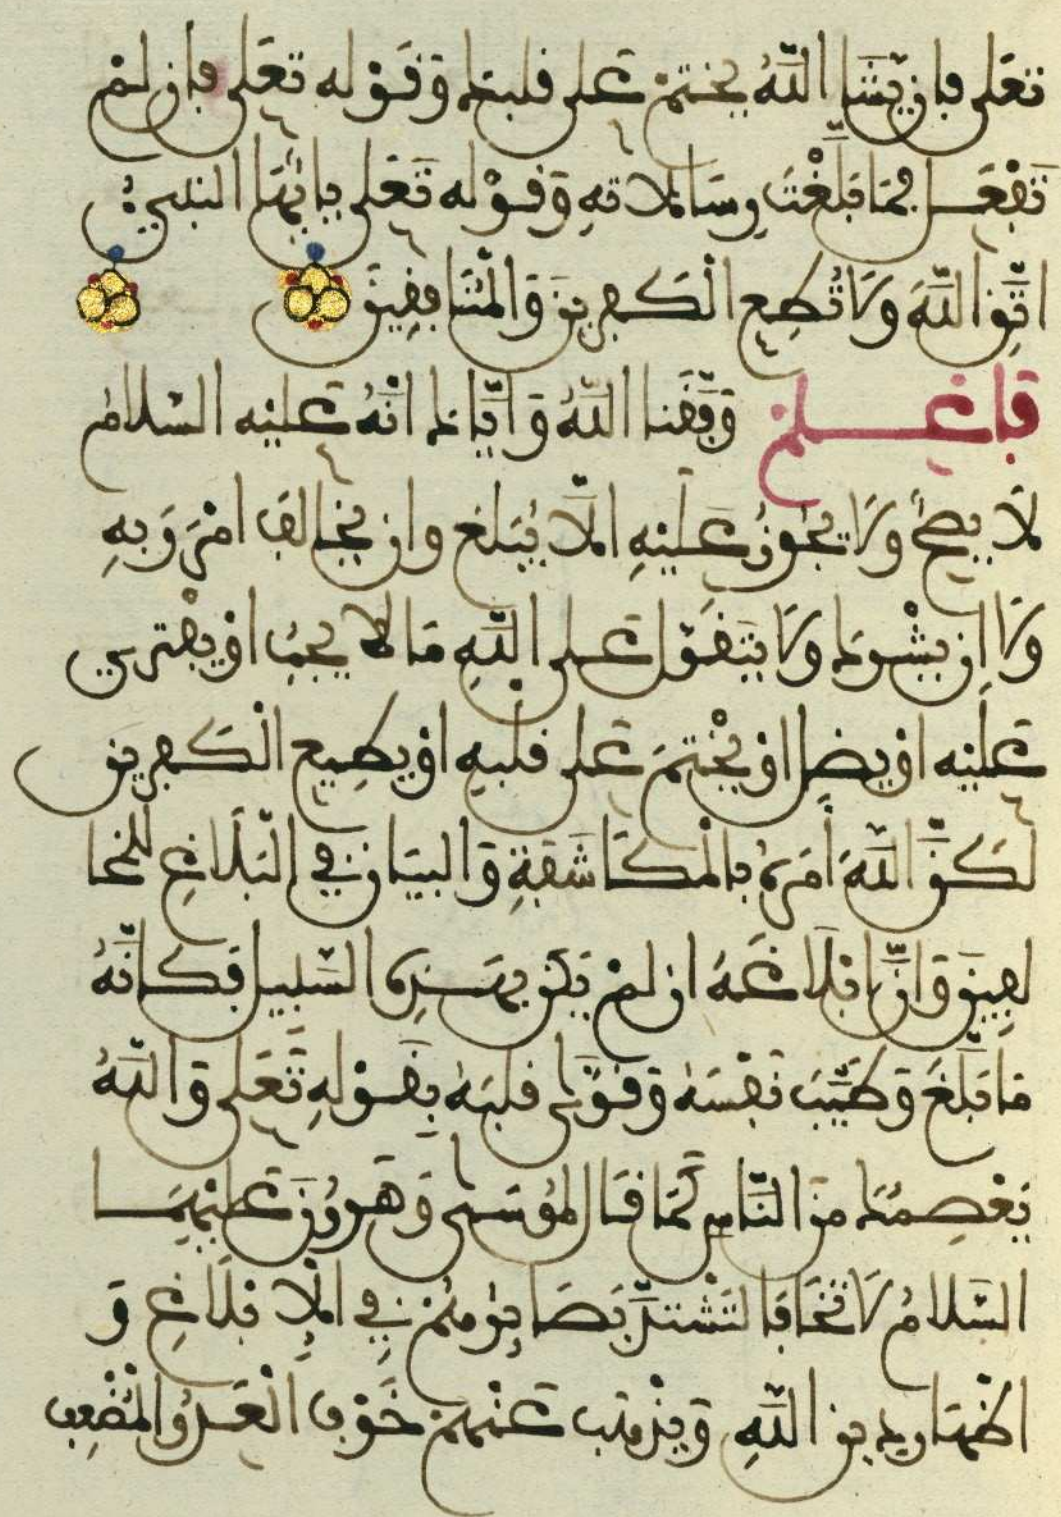 تعلى فإن يشإ اللّٰهُ يختم على قلبك وَقَوْله تعَلى فإن لمْ
تَفْعَل فمَا بَلَّغْتَ رِسَالاتهِ وَقوْله تَعَلى يأيّهَا النبيءُ
اتَّقِ اللّٰهَ وَلَا تُطِعِ الْكٰفرينَ وَالْمُنَافِقِينَ
فَاعْلَمْ وَفّقَنا اللّٰهُ وَإيّاك انّهُ عَليْه السّلامُ
لَا يصحُّ وَلَا يجُوزُ عَلَيْهِ الّا يُبَلّغ وان يخالفَ امْرَ رَبهِ
وَلَا ان يشْرك وَلَا يَتَقَوّل عَلى اللّٰهِ مَا لا يجبُ اوْ يفْتري
عَلَيْه اوْ يضل اوْ يخْتمَ عَلى قلْبهِ اوْ يطِيع الْكٰفرين
لَكنَّ اللّٰهَ أمَرهُ بالْمكَاشَفَةِ وَالبيَان في الْبَلَاغِ للمخا
لفِينَ وَانَّ ابْلَاغَهُ ان لمْ يَكن بهَذِه السّبيل فَكَأنّهُ
مَا بَلَّغَ وَطَيّبَ نفْسَهُ وَقوّى قلبَهُ بِقَوْلهِ تَعَلى وَاللّٰهُ
يَعْصِمُكَ منَ النَّاسِ كَمَا قَال لمُوسَى وَهٰرُونَ عَليْهِمَا
السّلامُ لَا تَخَافَا لتَشْتدّ بَصَائِرُهُمْ في الْإبْلَاغِ وَ
اظْهَار دين اللّٰهِ وَيذْهب عَنْهمْ خَوْف الْعَدُوّ المُضْعِف